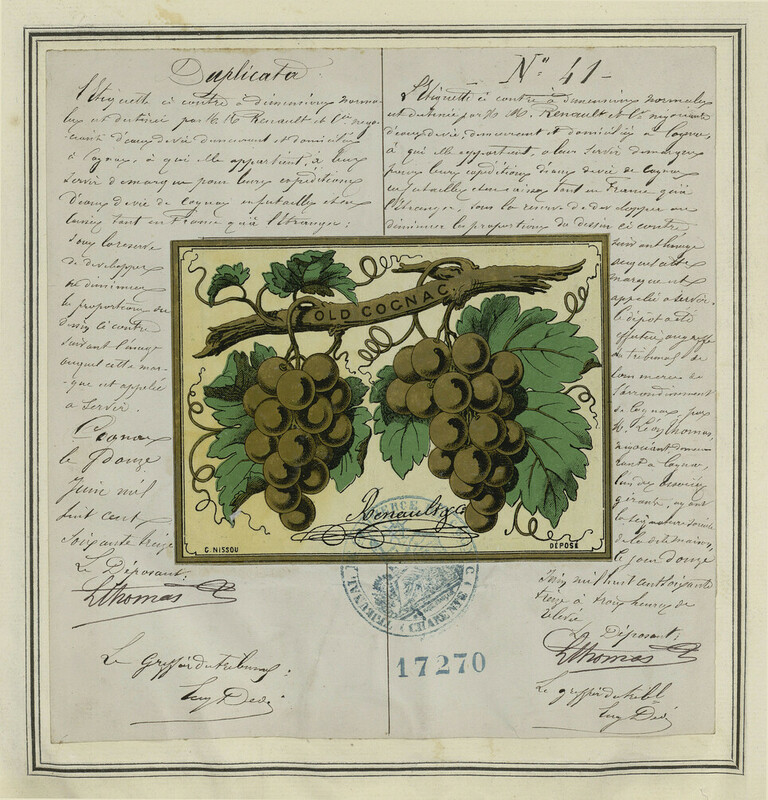 Duplicata
L'Etiquette ci contre à dimensions norma-
les est destinée par Mrs Renault et Cie négo-
ciants d'eaux de vie demeurant et domiciliés
à Cognac, à qui elle appartient, à leur
servir de marque pour leurs expéditions
D'eaux de vie de Cognac en futailles et en
caisses tant en France qu'à l'étranger;
sous la réserve
de développer
ou diminuer
les proportions du
dessin ci contre
suivant l'usage
auquel cette mar-
-que est appelée
à servir.
Cognac
le Douze
Juin mil
huit cent
soixante treize
Le Déposant:
LThomas
Le Greffier du tribunal:
N° 41-
L'Etiquette ci contre à dimensions normales
est destinée par Mrs Renault et Cie négociants
d'eaux de vie, demeurant et domiciliés à Cognac,
à qui elle appartient, à leur servir de marque
pour leurs expéditions d'eaux de vie de Cognac
en futailles et en caisses, tant en France qu'à
l'étranger, sous la réserve de développer ou
diminuer les proportions du dessin ci contre
suivant l'usage
auquel cette
marque est
appelée à servir.
Le dépôt a été
effectué au greffe
du tribunal de
commerce de
l'arrondissement
de Cognac, par
M. Léon Thomas,
négociant demeu-
rant à Cognac,
l'un des
gérants, ayant
la signature sociale
de la dite maison,
le jour douze
Juin mil huit cent soixante
treize à trois heures de
relevée
Le Déposant:
LThomas
Le greffier du tribl
OLD COGNAC.
Renault & Co
G. NISSOU
DÉPOSÉ
TRIBUNAL
COMMERCE
CHARENTE
17270